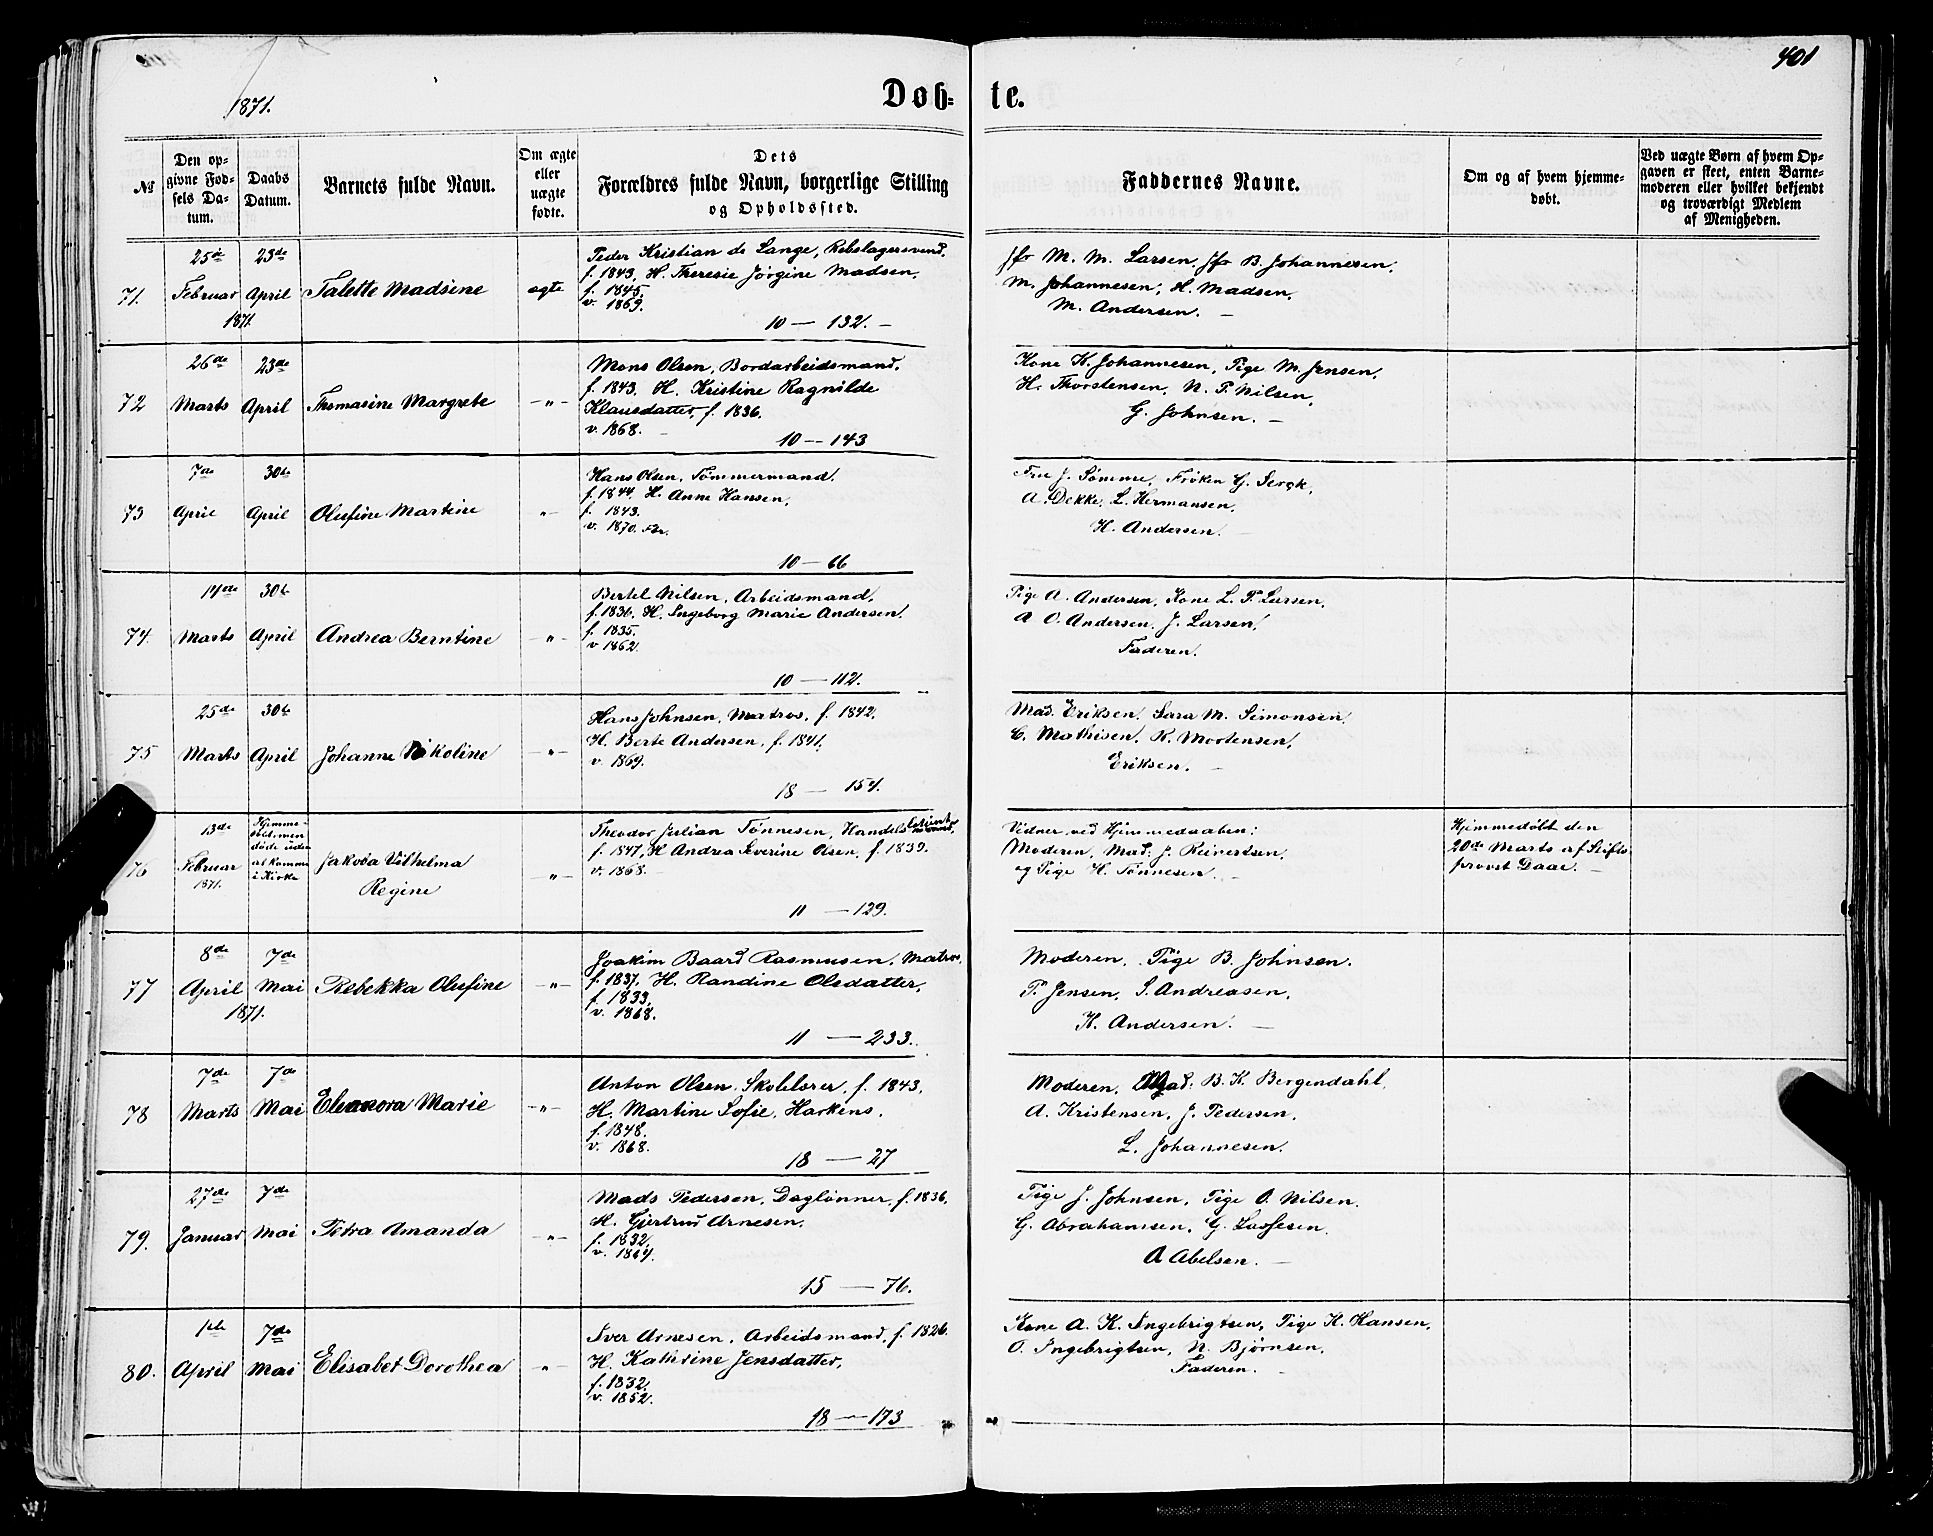 401
1871.
Døb- te.
№
Den opgivne Fødsels Datum.
Daabs Datum.
Barnets fulde Navn.
Om ægte eller uægte fødte.
Dets Forældres fulde Navn, borgerlige Stilling og Opholdssted.
Faddernes Navne.
Om og af hvem hjemmedøbt.
Ved uægte Børn af hvem Opgaven er skeet, enten Barnemoderen eller hvilket bekjendt og troværdigt Medlem af Menigheden.
71.
25de Februar 1871.
23de April
Talette Madsine
ægte
Peder Kristian de Lange, Rebslagersvend,
f. 1843, H. Theresie Jörgine Madsen,
f. 1845,
v. 1869.
10 — 132. —
Jfr M. M. Larsen, Jfr B. Johannesen,
M. Johannesen, H. Madsen,
M. Andersen. —
72
26de Marts
23de April
Thomasine Margrete
—"—
Mons Olsen, Bordarbeidsmand,
f. 1843, H. Kristine Ragnilde
Klausdatter, f. 1836.
v. 1868. —
10 — 143
Kone K. Johannesen, Pige M. Jensen,
H. Thorstensen, N. P. Nilsen,
G. Johnsen. —
73
7de April
30te April
Olufine Martine
"—
Hans Olsen, Tømmermand,
f. 1844. H. Anne Hansen,
f. 1843.
v. 1870.
10 — 66
Fru J. Sømme, Frøken G.
A. Dekke, L. Hermansen,
H. Andersen. —
74.
14de Marts
30te April
Andrea Berntine
—"—
Bertel Nilsen, Arbeidsmand,
f. 1836. H. Ingeborg Marie Andersen,
f. 1835.
v 1862.
10 — 112.
Pige A. Andersen, Kone L. P. Larsen,
A O. Andersen, J. Larsen,
Faderen.
75
25de Marts
30te April
Johanne Nikoline
—"—
Hans Johnsen, Matros, f. 1842,
H. Berte Andersen, f. 1841,
v. 1869.
18 — 154.
Mad. Eriksen, Sara M. Simonsen,
C. Mathisen, K. Mortensen,
Eriksen. —
76
13de Februar 1871.
Hjemmedøbt, men døde inden at komme i Kirke
Jakoba Vilhelma
Regine
—"—
Theodor Julian Tønnesen, Handelsbetjent
f. 1847, H Andrea Severine Olsen, f. 1839.
v. 1868. —
11 — 129.
Vidner ved Hjemmedaaben:
Moderen, Mad: J. Reinertsen,
og Pige H. Tönnesen. —
Hjemmedöbt den
20de Marts af Stifts
provst Daae. —
77
8de April 1871.
7de Mai
Rebekka Olufine
—"—
Joakim Baard Rasmussen, Matros,
f. 1837, H. Randine Olsdatter,
f. 1833,
v. 1868.
11 — 233.
Moderen, Pige B. Johnsen.
P. Jensen, S. Andreasen,
H. Andersen. —
78
7de Marts
7de Mai
Eleanora Marie
—"—
Anton Olsen, Skolelærer, f. 1843,
H. Martine Sofie, Harkens,
f. 1848.
v. 1868.
18 — 27
Moderen, Mad: B. K. Bergendahl,
A. Kristensen, J. Pedersen,
L. Johannesen.
79.
27de Januar
7de Mai
Petra Amanda
—"—
Mads Pedersen, Daglønner, f. 1836,
H. Gjertrud Arnesen,
f. 1832,
v. 1864.
15 — 76.
Pige J. Johnsen, Pige O. Nilsen.
G. Abrahamsen, G. Lassesen
A Abelsen. —
80.
1ste April
7de Mai
Elisabet Dorothea
"—
Iver Arnesen, Arbeidsmand, f. 1826.
H. Kathrine Jensdatter,
f. 1832,
v. 1852.
18 — 173
Kone A. K. Ingebrigtsen, Pige K. Hansen,
O. Ingebrigtsen, N. Bjørnsen,
Faderen. —